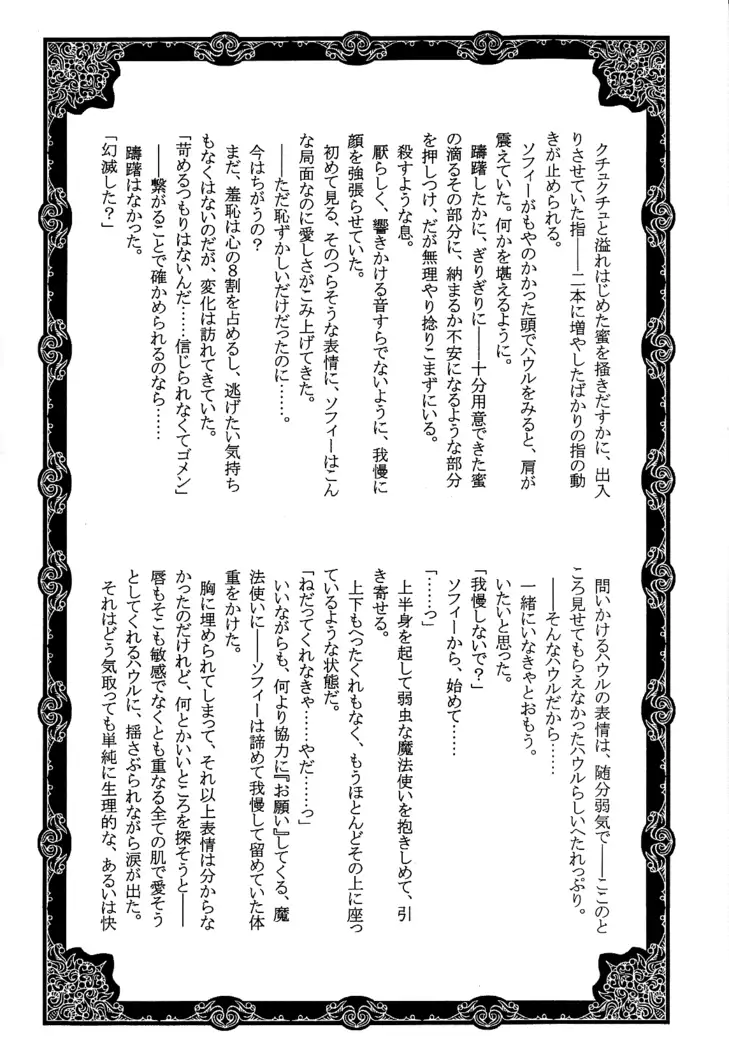 クチュクチュと溢れはじめた蜜を掻きだすかに、出入
りさせていた指――二本に増やしたばかりの指の動
きが止められる。
ソフィーがもやのかかった頭でハウルをみると、肩が
震えていた。何かを堪えるように。
躊躇したかに、ぎりぎりに――十分用意できた蜜
の滴るその部分に、納まるか不安になるような部分
を押しつけ、だが無理やり捻りこまずにいる。
殺すような息。
厭らしく、響きかける音すらでないように、我慢に
顔を強張らせていた。
初めて見る、そのつらそうな表情に、ソフィーはこん
な局面なのに愛しさがこみ上げてきた。
――ただ恥ずかしいだけだったのに……。
今はちがうの？
まだ、羞恥は心の８割を占めるし、逃げたい気持ち
もなくはないのだが、変化は訪れてきていた。
「苛めるつもりはないんだ……信じられなくてゴメン」
――繋がることで確かめられるのなら……
躊躇はなかった。
「幻滅した？」
問いかけるハウルの表情は、随分弱気で――ここのと
ころ見せてもらえなかったハウルらしいへたれっぷり。
――そんなハウルだから……
一緒にいなきゃとおもう。
いたいと思った。
「我慢しないで？」
ソフィーから、始めて……
「……っ」
上半身を起して弱虫な魔法使いを抱きしめて、引
き寄せる。
上下もへったくれもなく、もうほとんどその上に座っ
ているような状態だ。
「ねだってくれなきゃ……やだ……っ」
いいながらも、何より協力に『お願い』してくる、魔
法使いに――ソフィーは諦めて我慢して留めていた体
重をかけた。
胸に埋められてしまって、それ以上表情は分からな
かったのだけれど、何とかいいところを探そうと――
唇もそこも敏感でなくとも重なる全ての肌で愛そう
としてくれるハウルに、揺さぶられながら涙が出た。
それはどう気取っても単純に生理的な、あるいは快